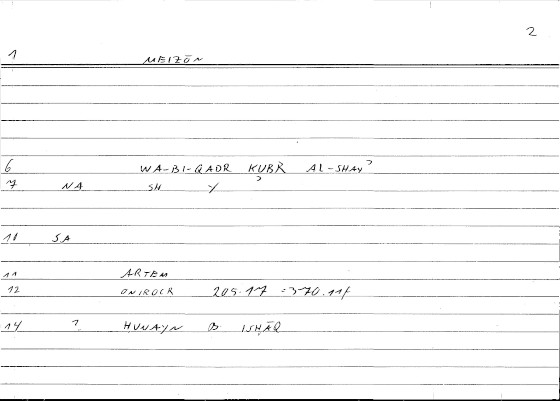 2
1 MEIZŌN
6 WA-BI-QADR KUBR AL-SHAYʾ
7 NA SH Y ʾ
10 SA
11 ARTEM
12 ONIROCR 205.17 = 370.11f
14 ? HUNAYN B ISHĀQ